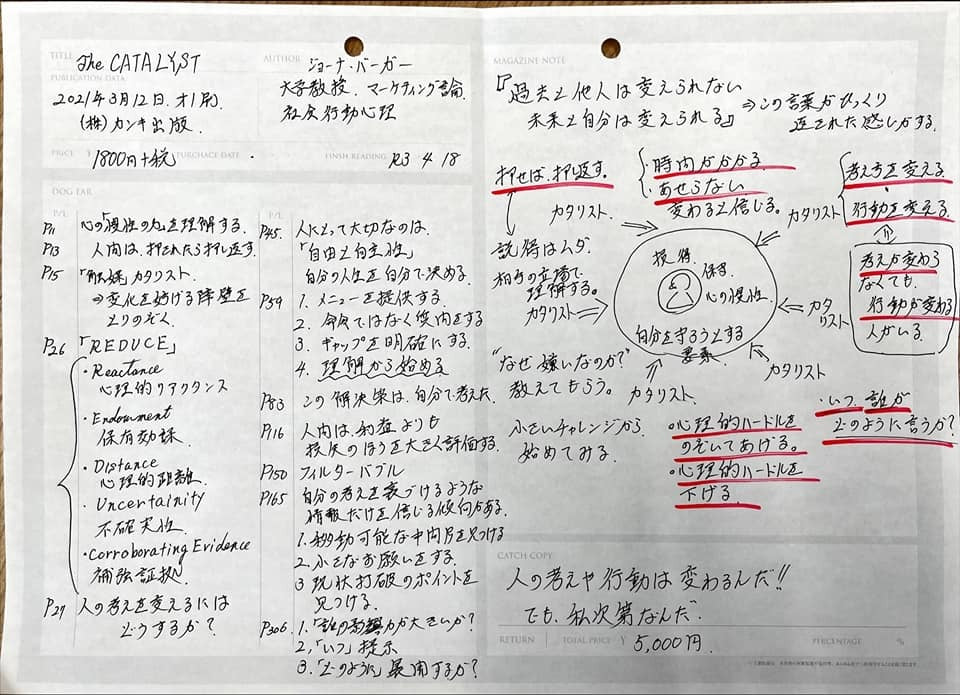 TITLE The CATALYST
AUTHOR ジョーナ・バーガー
PUBLICATION DATA
2021年3月12日.オ1刷
(株)カンキ出版.
大学教授. マーケティング論
社会行動心理
PRICE ¥ 1800円+税 PURCHACE DATE . FINSH READING R3 4 18
DOG EAR
P/L
P11 心の「慣性の力」を理解する.
P13 人間は、押されたら押し返す
P15 「触媒」カタリスト.
⇒変化を妨げる障壁を
とりのぞく.
P26 「REDUCE」
・Reactance
心理的リアクタンス
・Endowment
保有効果
・Distance
心理的距離
・Uncertainity
不確実性.
・Corroborating Evidence
補強証拠
P27 人の考えを変えるには
どうするか?
P/L
P45. 人にとって大切なのは.
「自由と自主性」
自分の人生を自分で決める
P59 1. メニューを提供する.
2. 命令ではなく質問をする
3. ギャップを明確にする.
4. 理解から始める
P83 この解決策は、自分で考えた.
P116 人間は、利益よりも
損失のほうを大きく評価する.
P150 フィルターバブル
P165 自分の考えを裏づけるような
情報だけを信じる傾向がある.
1.移動可能な中間点を見つける
2.小さなお願いをする.
3 現状打破のポイントを
見つける.
P306 1.「誰の影響力が大きいか?
2,「いつ」提示
3.「どのように」展開するか?
MAGAZINE NOTE
『過去と他人は変えられない
未来と自分は変えられる』
⇒この言葉がひっくり
返された感じがする.
押せば、押し返す.
・時間がかかる
・あせらない
変わると信じる.
考え方を変える
・
行動を変える.
考えが変わら
なくても、
行動が変わる
人がいる.
説得はムダ.
相手の立場で、
理解する.
カタリスト
カタリスト
カタリスト
カタリスト
カタリスト
カタリスト.
損得
保身
心の慣性.
自分を守ろうとする
要素
"なぜ嫌いなのか?"
教えてもらう.
小さいチャレンジから
始めてみる.
・心理的ハードルを
のぞいてあげる.
・心理的ハードルを
下げる
・いつ、誰が
どのように言うか?
CATCH COPY
人の考えや行動は変わるんだ!!
でも、私次第なんだ.
RETURN TOTAL PRICE ¥ 5,000円 PERCENTAGE %